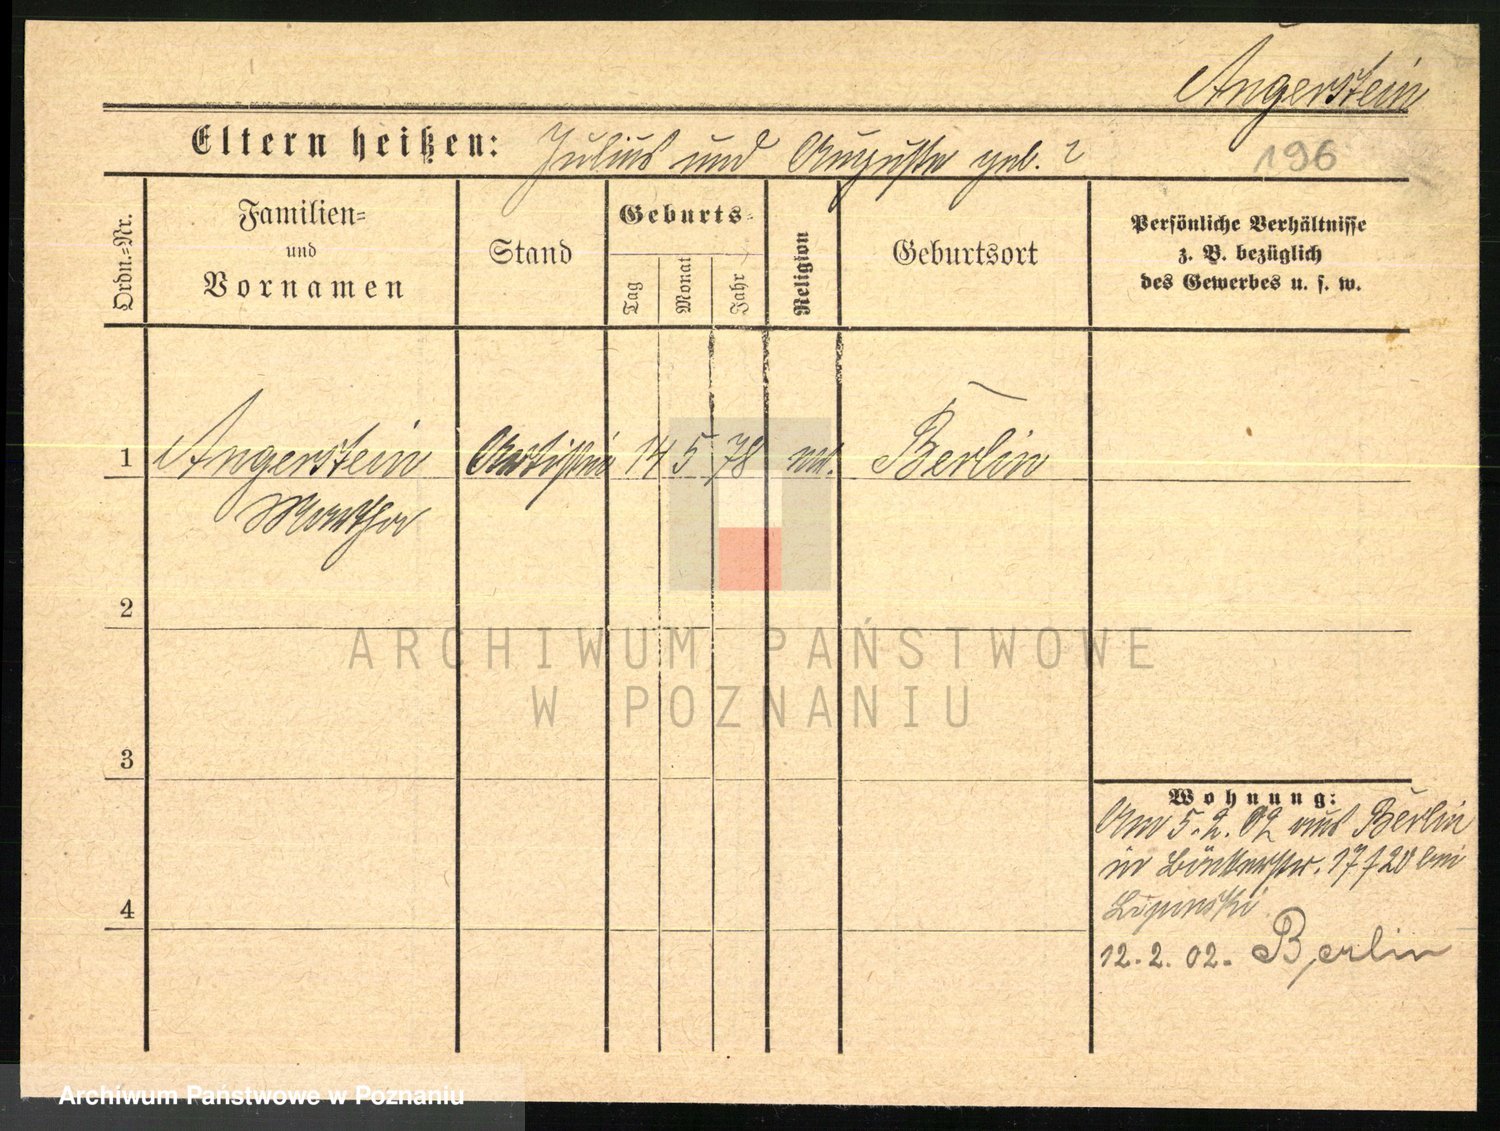 Angerstein
Eltern heißen: Julius und Auguste geb. ?
196
Ordn.=Nr.
Familien=
und
Vornamen
Stand
Geburts=
Tag
Monat
Jahr
Religion
Geburtsort
Persönliche Verhältnisse
z. B. bezüglich
des Gewerbes u. s. w.
1 Angerstein Artistin 14 5 78 Berlin
Martha
2
3
4
Wohnung:
Am 5.2.02 aus Berlin
in 17/20 bei
12.2.02. Berlin
ARCHIWUM PAŃSTWOWE
W POZNANIU
Archiwum Państwowe w Poznaniu